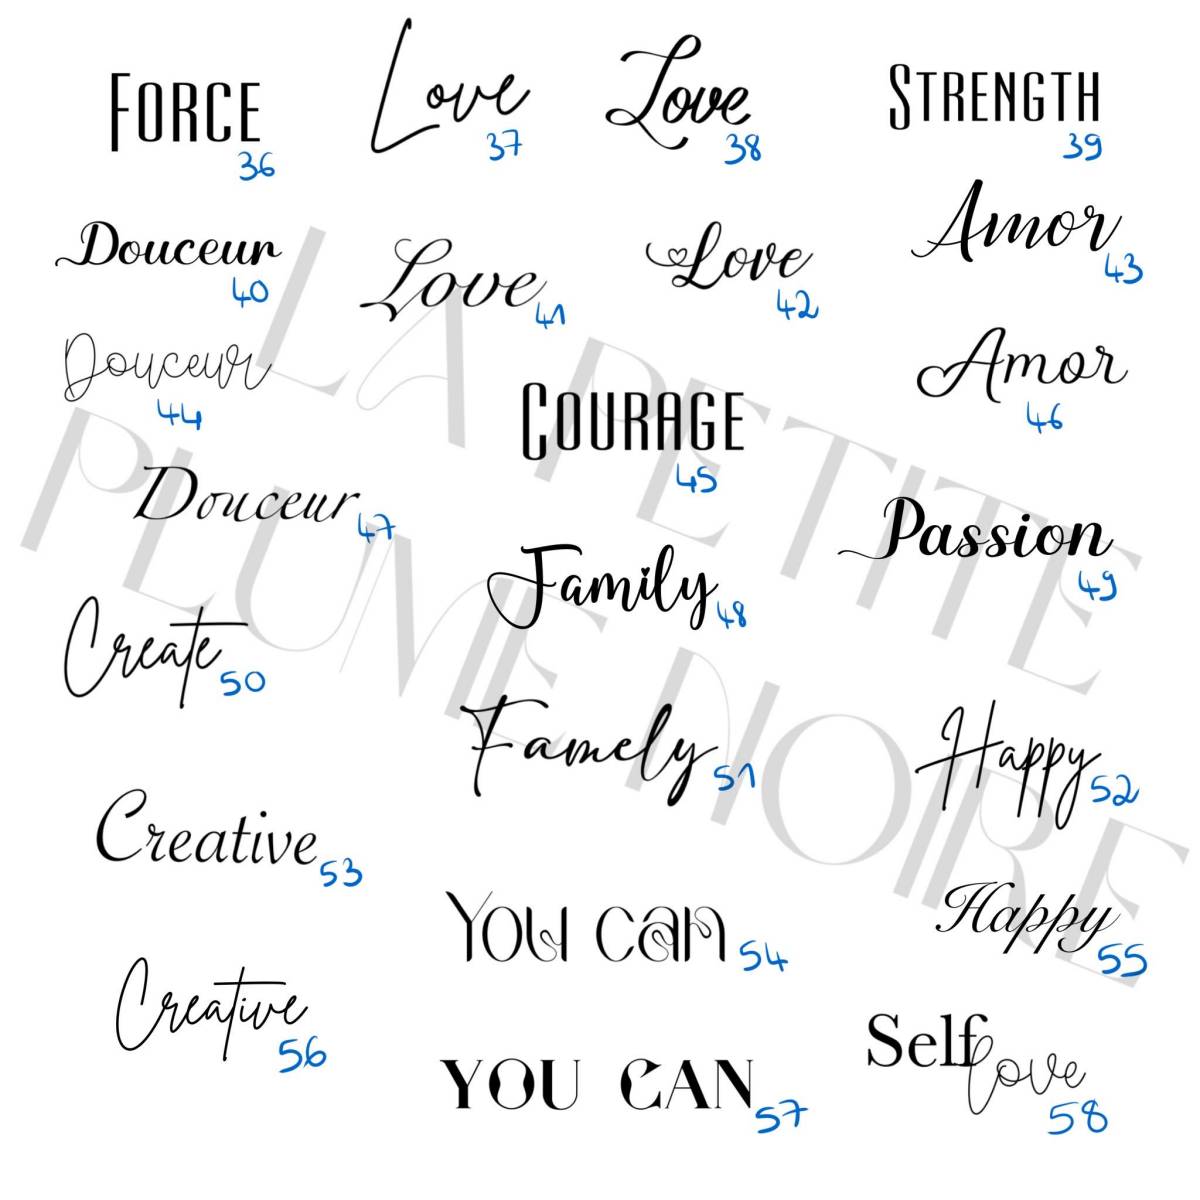 Force
36
Love
37
Love
38
Strength
39
Douceur
40
Love
41
Love
42
Amor
43
Douceur
44
Courage
45
Amor
46
Douceur
47
Family
48
Passion
49
Create
50
Famely
51
Happy
52
Creative
53
You can
54
Happy
55
Creative
56
YOU CAN
57
Self love
58
LA PETITE
PLUME NOIRE